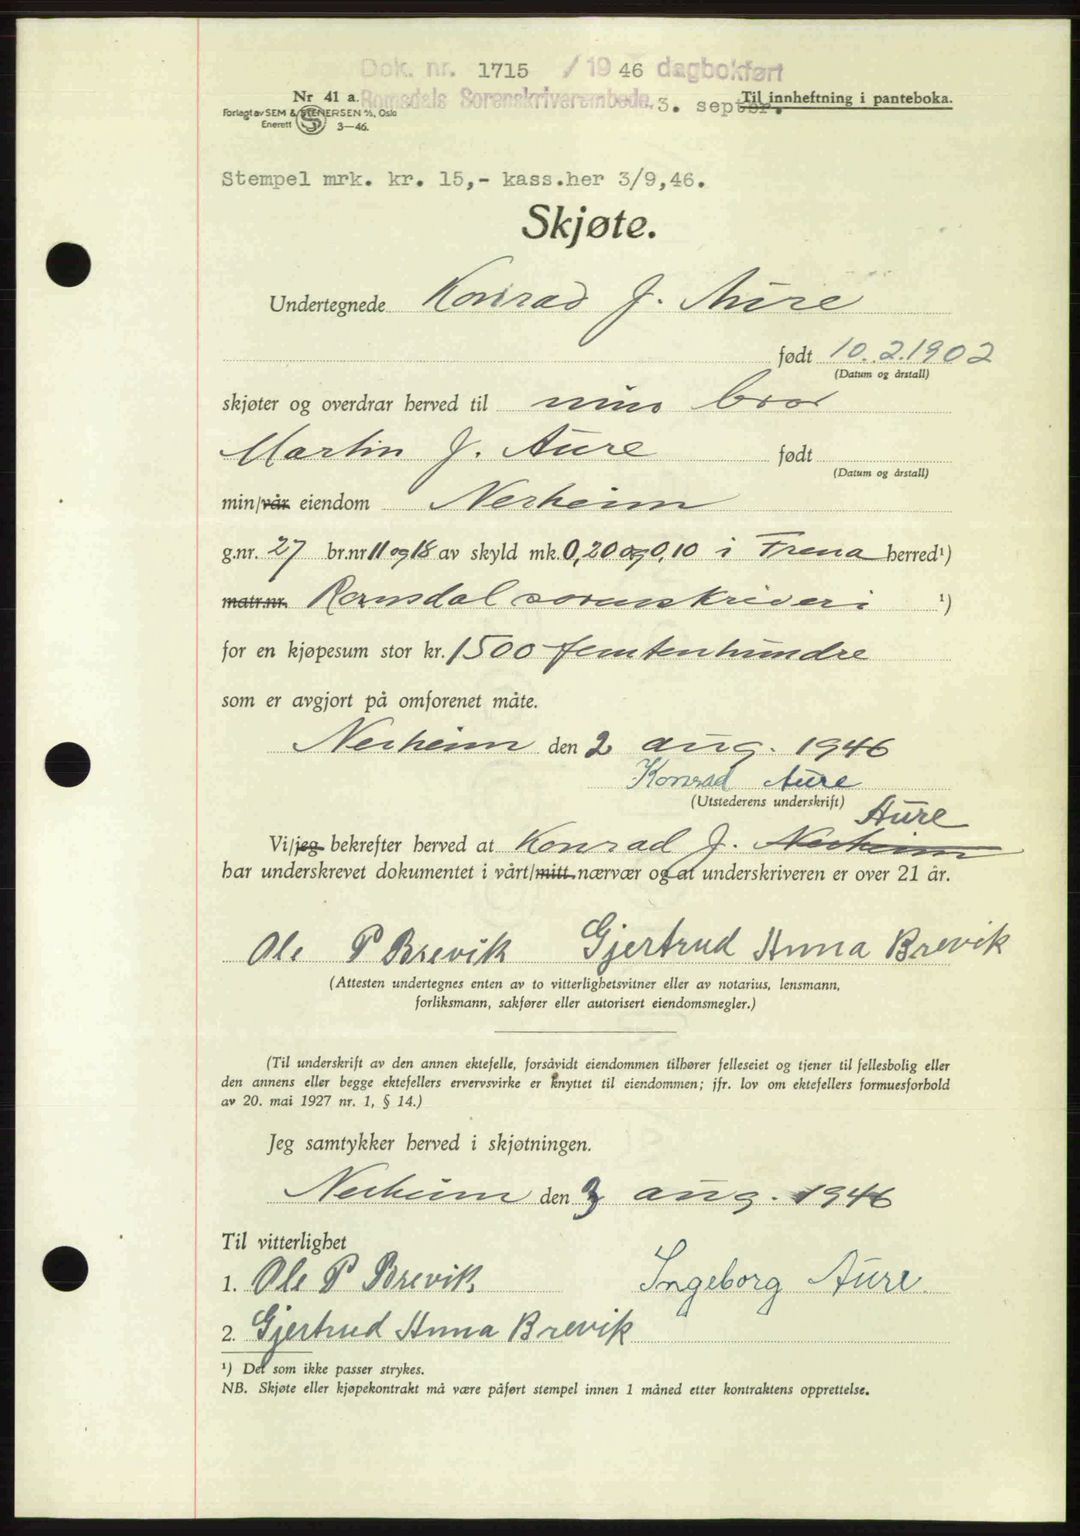 Dok. nr. 1715 / 19 46 dagbokført
Nr 41 a. Romsdals Sorenskriverembede. 3. septbr. Til innheftning i panteboka.
Forlagt av SEM & STENERSEN A/S, Oslo
Enerett 3—46.
Stempel mrk. kr. 15,- kass.her 3/9,46.
Skjøte.
Undertegnede Konrad J. Aure
født 10.2.1902
(Datum og årstall)
skjøter og overdrar herved til min bror
Martin J. Aure født
(Datum og årstall)
min/vår eiendom Nerheim
g.nr. 27 br.nr 11 og 18 av skyld mk. 0,20 og 0,10 i Frena herred¹)
matr.nr. Romsdal sorenskriveri ¹)
for en kjøpesum stor kr. 1500 femtenhundre
som er avgjort på omforenet måte.
Nerheim den 2 aug. 1946
Konrad Aure
(Utstederens underskrift) Aure
Vi/jeg bekrefter herved at Konrad J. Nerheim
har underskrevet dokumentet i vårt/mitt nærvær og at underskriveren er over 21 år.
Ole P Brevik Gjertrud Anna Brevik
(Attesten undertegnes enten av to vitterlighetsvitner eller av notarius, lensmann,
forliksmann, sakfører eller autorisert eiendomsmegler.)
(Til underskrift av den annen ektefelle, forsåvidt eiendommen tilhører felleseiet og tjener til fellesbolig eller
den annens eller begge ektefellers ervervsvirke er knyttet til eiendommen; jfr. lov om ektefellers formuesforhold
av 20. mai 1927 nr. 1, § 14.)
Jeg samtykker herved i skjøtningen.
Nerheim den 3 aug. 1946
Til vitterlighet
1. Ole P Brevik Ingeborg Aure.
2. Gjertrud Anna Brevik
¹) Det som ikke passer strykes.
NB. Skjøte eller kjøpekontrakt må være påført stempel innen 1 måned etter kontraktens opprettelse.